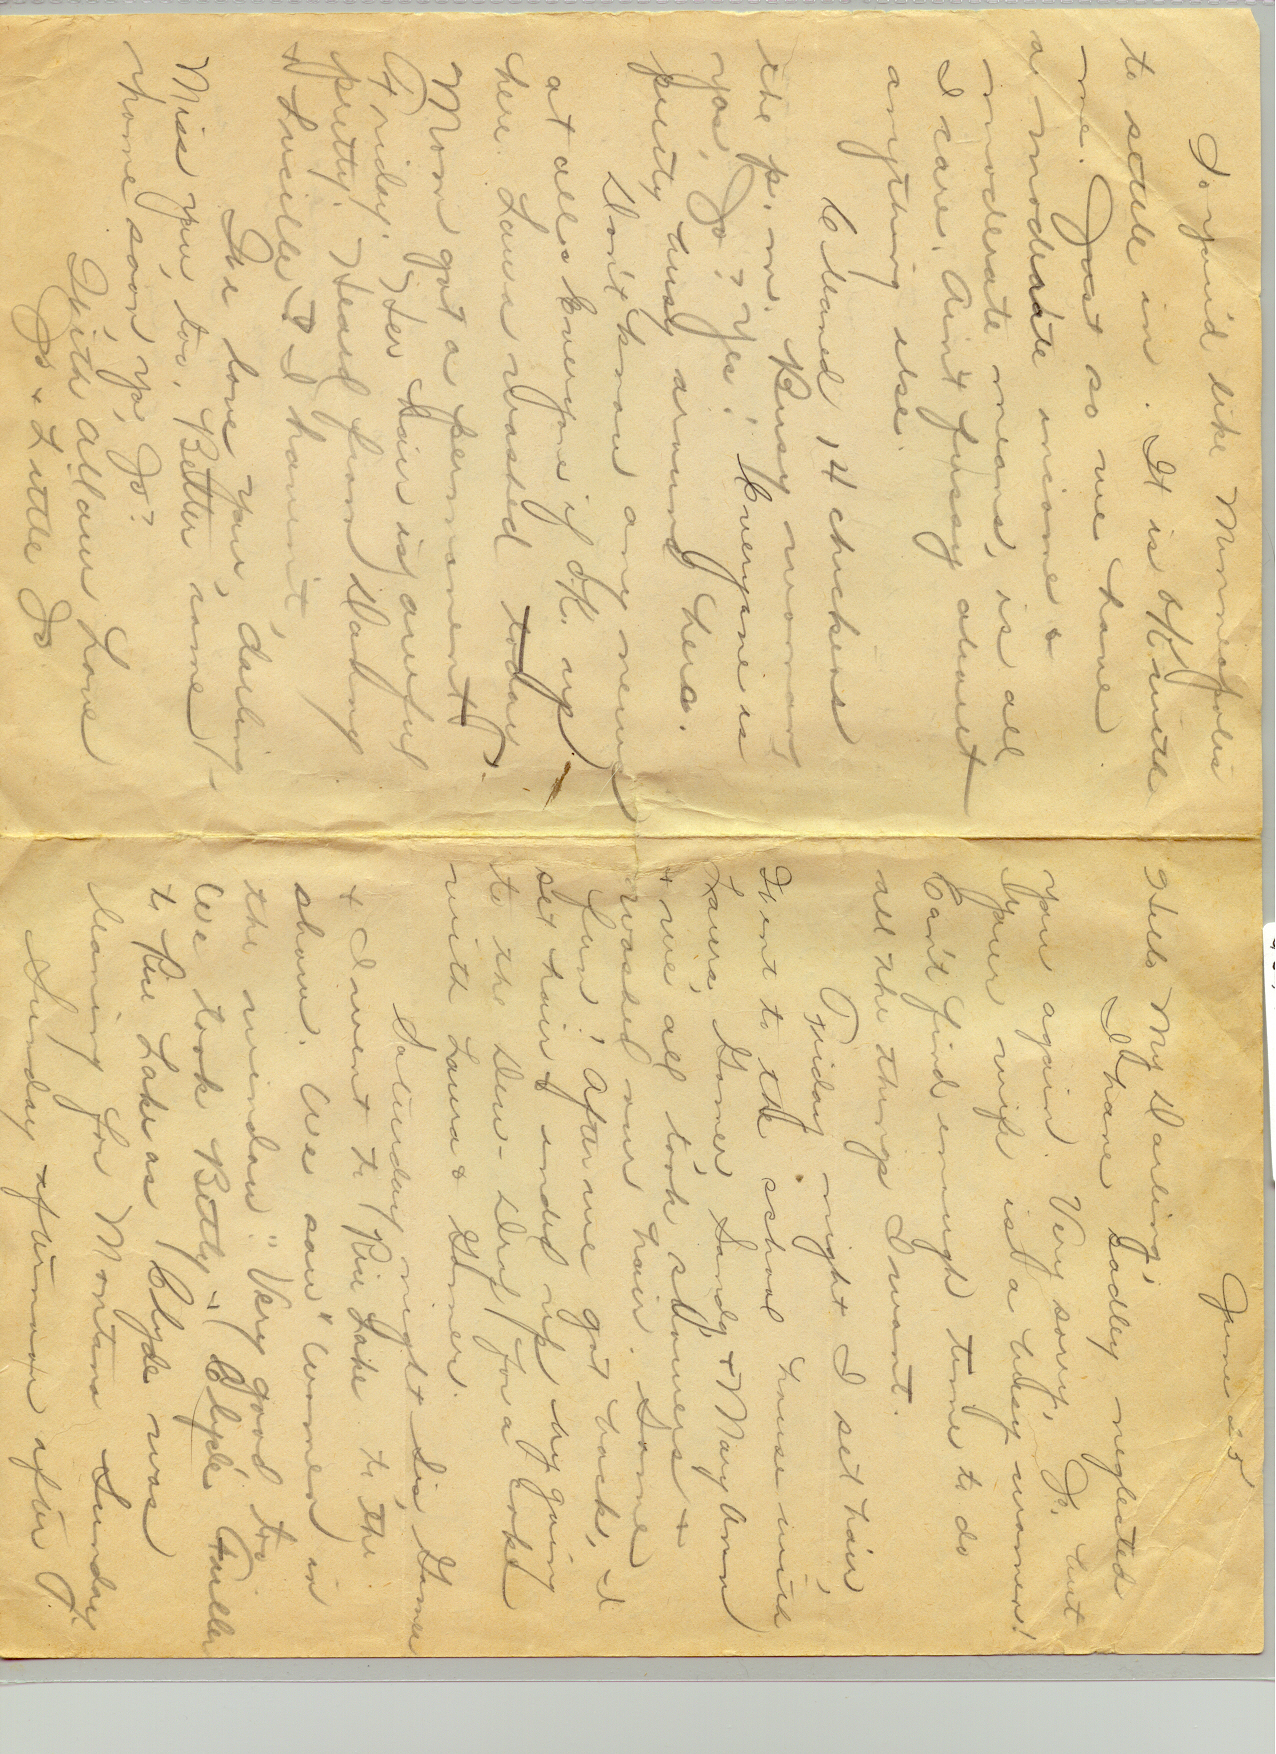 June 20
Hello My Darling,
I have sadley neglected
you again. Very sorry, Jo, but
your wife is a busy women!
Can't find enough time to do
all the things I want.
Friday night I set hair,
Went to the school house with
Laura, Gomer, Sandy & Mary Ann
& we all took showers &
washed our hair. Some
fun! After we got back, I
set hair & ended up by going
to the Dew-Drop for a coke
with Laura & Gomer.
Saturday night Sis, Gomer
& I went to Rice Lake to the
show. We saw "Women in
the window." Very good too
We took Betty & Clyde Fuller
to Rice Lake as Clyde was
leaving for Montana Sunday
Sunday afternoon after J.
Jo you'd like Minneapolis
to settle in. It is OK with
me. Just so we have
a moderate income &
moderate means, is all
I care. Ain't fussy about
anything else.
Cleaned 14 chickens
the p.m. Busy woman,
yes, Jo? Yes! Everyone is
pretty busy around here.
Don't know any news
at all. Everyone is OK up
here. Laura washed today.
Mom got a permanent
Friday. Her hair is awful
pretty. Heard from Dabny
& Lucille & I haven't.
We love you, darling
Miss you, too. Better come
home soon, yes, Jo?
With All our Love
Jo & Little Jo.